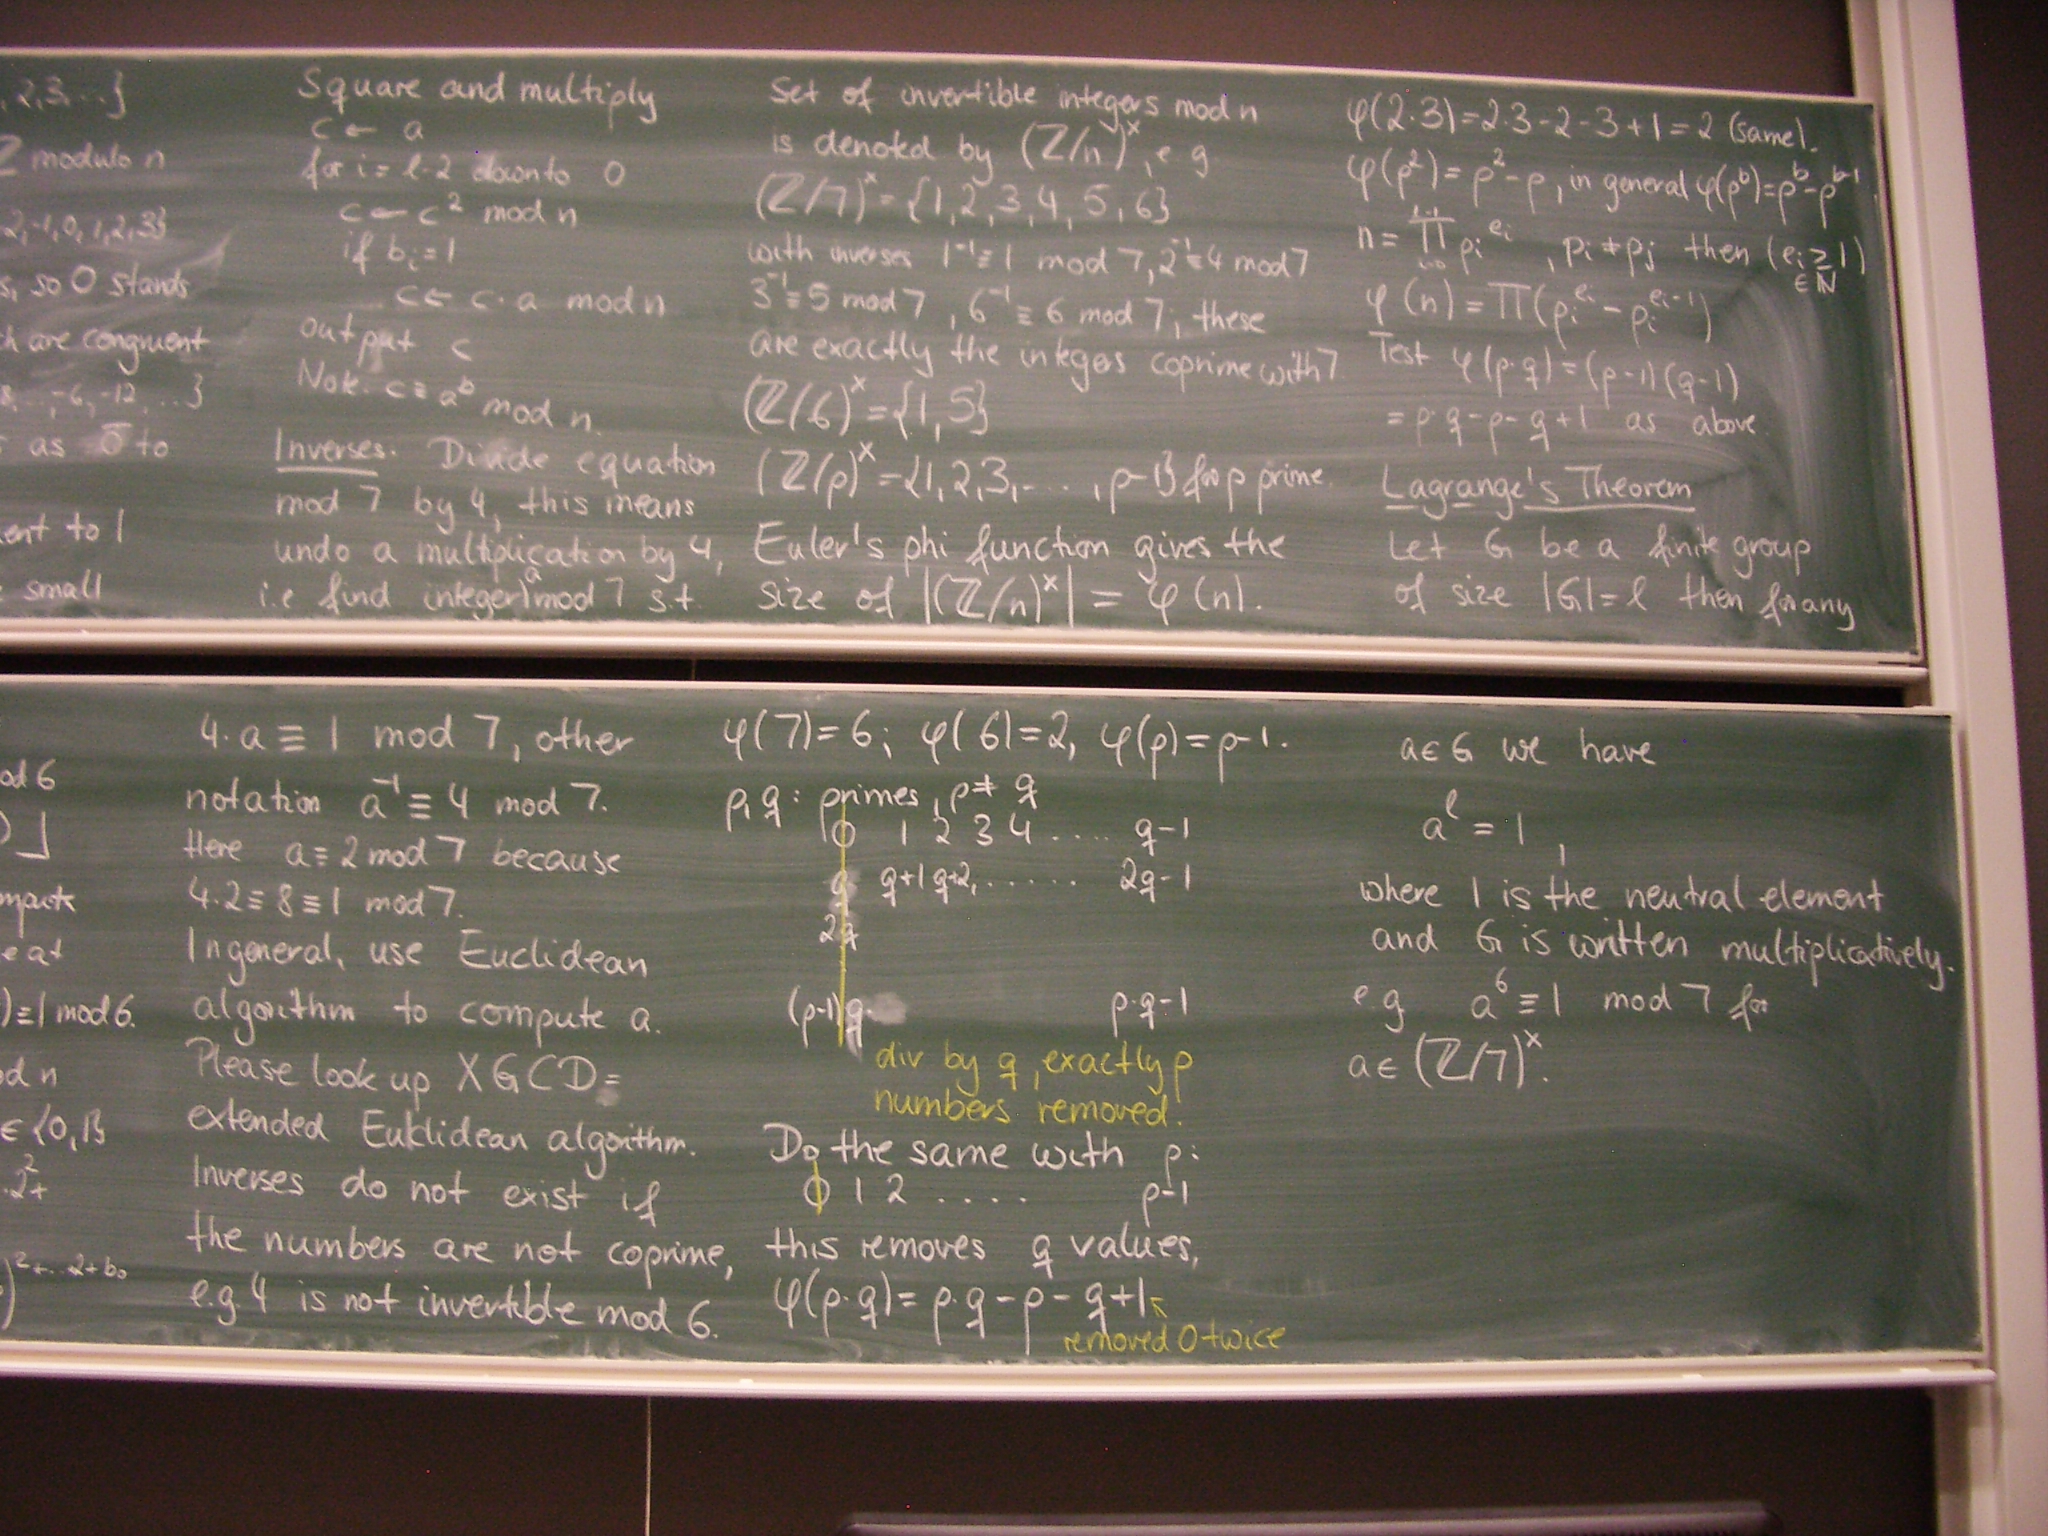 , 2,3, ...}
Z modulo n
2,-1,0,1,2,3}
s, so 0 stands
h are congruent
8, ..., -6, -12, ...}
as 0̄ to
ent to 1
small
Square and multiply
c ← a
for i = l-2 downto 0
c ← c² mod n
if bᵢ = 1
c ← c·a mod n
output c
Note: c ≡ aᵇ mod n.
Inverses. Divide equation
mod 7 by 4, this means
undo a multiplication by 4,
i.e find integer a mod 7 s.t.
Set of invertible integers mod n
is denoted by (Z/n)ˣ, e g.
(Z/7)ˣ = {1,2,3,4,5,6}
with inverses 1⁻¹≡1 mod 7, 2⁻¹≡4 mod 7
3⁻¹≡5 mod 7, 6⁻¹≡6 mod 7, these
are exactly the integers coprime with 7
(Z/6)ˣ = {1,5}
(Z/p)ˣ = {1,2,3,..., p-1} for p prime.
Euler's phi function gives the
size of |(Z/n)ˣ| = φ(n).
φ(2·3) = 2·3-2-3+1 = 2 (same).
φ(p²) = p²-p, in general φ(pᵇ) = pᵇ-pᵇ⁻¹
n = ∏ pᵢ^eᵢ, pᵢ ≠ pⱼ then (eᵢ ≥ 1)
∈ ℕ
φ(n) = ∏(pᵢ^eᵢ - pᵢ^(eᵢ-1))
Test φ(p·q) = (p-1)(q-1)
= p·q-p-q+1 as above.
Lagrange's Theorem
Let G be a finite group
of size |G| = l then for any
od 6
mpute
e at
) ≡ 1 mod 6.
d n
∈ {0,1}
.2²+
)²+...2+b₀
4·a ≡ 1 mod 7, other
notation a⁻¹ ≡ 4 mod 7.
Here a ≡ 2 mod 7 because
4·2 ≡ 8 ≡ 1 mod 7.
In general, use Euclidean
algorithm to compute a.
Please look up XGCD =
extended Euklidean algorithm.
Inverses do not exist if
the numbers are not coprime,
e.g. 4 is not invertible mod 6.
φ(7) = 6; φ(6) = 2, φ(p) = p-1.
p,q: primes, p ≠ q
0 1 2 3 4 ..... q-1
q q+1 q+2, ...... 2q-1
2q
(p-1)q p·q-1
div by q, exactly p
numbers removed.
Do the same with p:
0 1 2 .... p-1
this removes q values,
φ(p·q) = p·q-p-q+1
removed 0 twice
a ∈ G we have
aˡ = 1,
where 1 is the neutral element
and G is written multiplicatively.
e g a⁶ ≡ 1 mod 7 for
a ∈ (Z/7)ˣ.